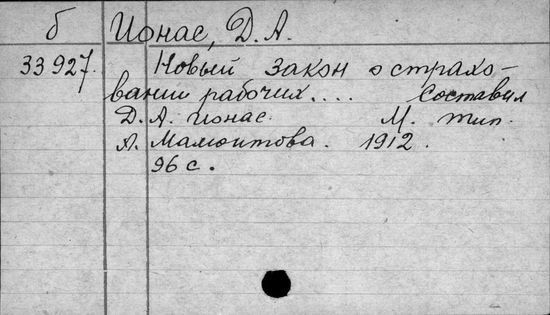 б Ионас, Д. А.
33927. Новый закон о страхо-
вании рабочих.... Составил
Д. А. Ионас. М. тип.
А. Мамонтова. 1912.
96 с.